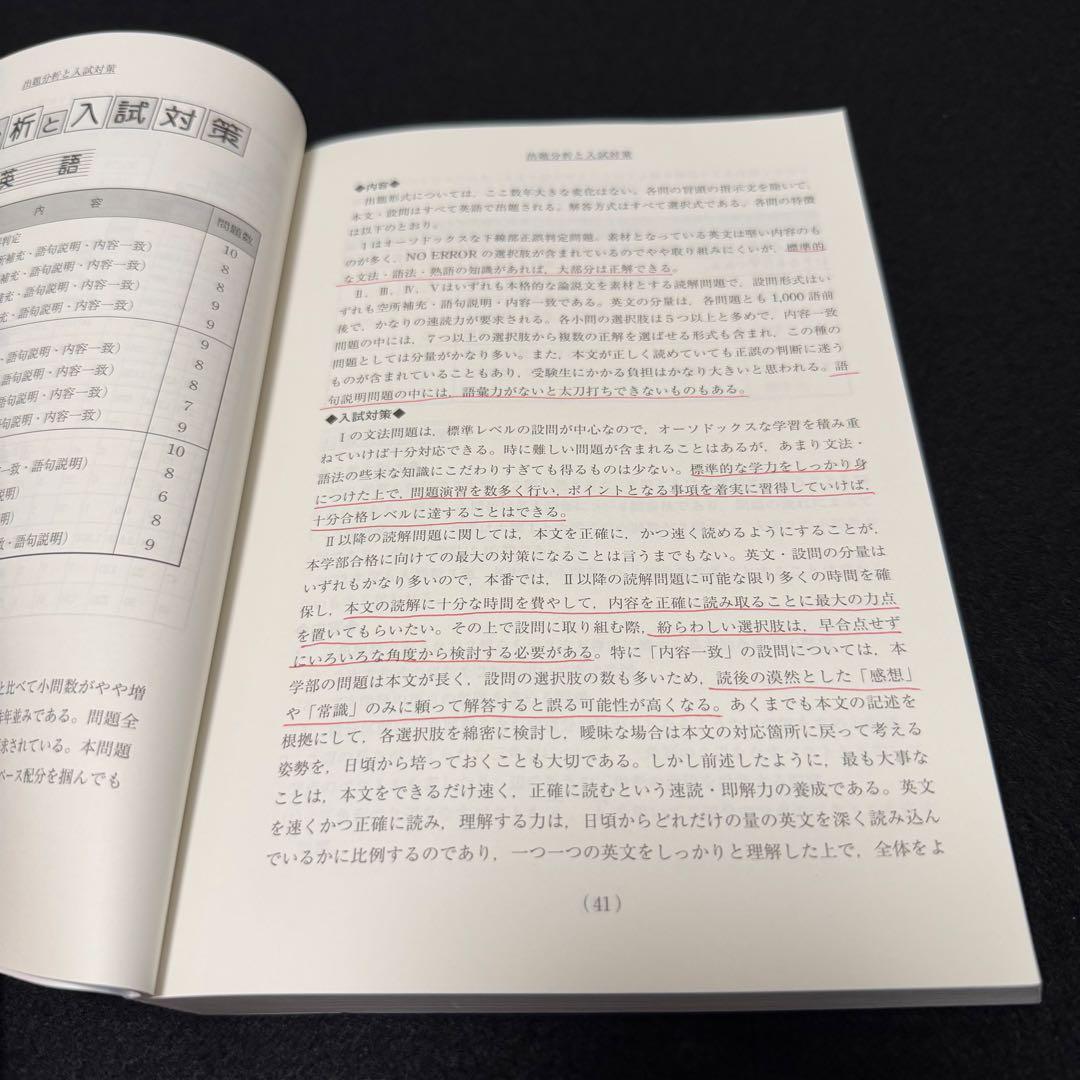 出題分析と入試対策
析と入試対策
英語
内容
問題数
判定
10
所補充・語句説明・内容一致)
8
補充・語句説明・内容一致)
8
補充・語句説明・内容一致)
9
充・語句説明・内容一致)
9
9
・語句説明・内容一致)
8
語句説明・内容一致)
8
語句説明・内容一致)
7
句説明・内容一致)
9
10
一致・語句説明)
8
説明)
6
明)
8
致・語句説明)
9
と比べて小問数がやや増
年並みである。問題全
求されている。本問題
ペース配分を掴んでも
出題分析と入試対策
◆内容◆
出題形式については，ここ数年大きな変化はない。各問の冒頭の指示文を除いて，
本文・設問はすべて英語で出題される。解答方式はすべて選択式である。各問の特徴
は以下のとおり。
Ⅰはオーソドックスな下線部正誤判定問題。素材となっている英文は堅い内容のも
のが多く，NO ERROR の選択肢が含まれているのでやや取り組みにくいが，標準的
な文法・語法・熟語の知識があれば，大部分は正解できる。
Ⅱ，Ⅲ，Ⅳ，Ⅴはいずれも本格的な論説文を素材とする読解問題で，設問形式はい
ずれも空所補充・語句説明・内容一致である。英文の分量は，各問題とも 1,000 語前
後で，かなりの速読力が要求される。各小問の選択肢は５つ以上と多めで，内容一致
問題の中には，７つ以上の選択肢から複数の正解を選ばせる形式も含まれ，この種の
問題としては分量がかなり多い。また，本文が正しく読めていても正誤の判断に迷う
ものが含まれていることもあり，受験生にかかる負担はかなり大きいと思われる。語
句説明問題の中には，語彙力がないと太刀打ちできないものもある。
◆入試対策◆
Ⅰの文法問題は，標準レベルの設問が中心なので，オーソドックスな学習を積み重
ねていけば十分対応できる。時に難しい問題が含まれることはあるが，あまり文法・
語法の些末な知識にこだわりすぎても得るものは少ない。標準的な学力をしっかり身
につけた上で，問題演習を数多く行い，ポイントとなる事項を着実に習得していけば，
十分合格レベルに達することはできる。
Ⅱ以降の読解問題に関しては，本文を正確に，かつ速く読めるようにすることが，
本学部合格に向けての最大の対策になることは言うまでもない。英文・設問の分量は
いずれもかなり多いので，本番では，Ⅱ以降の読解問題に可能な限り多くの時間を確
保し，本文の読解に十分な時間を費やして，内容を正確に読み取ることに最大の力点
を置いてもらいたい。その上で設問に取り組む際，紛らわしい選択肢は，早合点せず
にいろいろな角度から検討する必要がある。特に「内容一致」の設問については，本
学部の問題は本文が長く，設問の選択肢の数も多いため，読後の漠然とした「感想」
や「常識」のみに頼って解答すると誤る可能性が高くなる。あくまでも本文の記述を
根拠にして，各選択肢を綿密に検討し，曖昧な場合は本文の対応箇所に戻って考える
姿勢を，日頃から培っておくことも大切である。しかし前述したように，最も大事な
ことは，本文をできるだけ速く，正確に読むという速読・即解力の養成である。英文
を速くかつ正確に読み，理解する力は，日頃からどれだけの量の英文を深く読み込ん
でいるかに比例するのであり，一つ一つの英文をしっかりと理解した上で，全体をよ
(41)